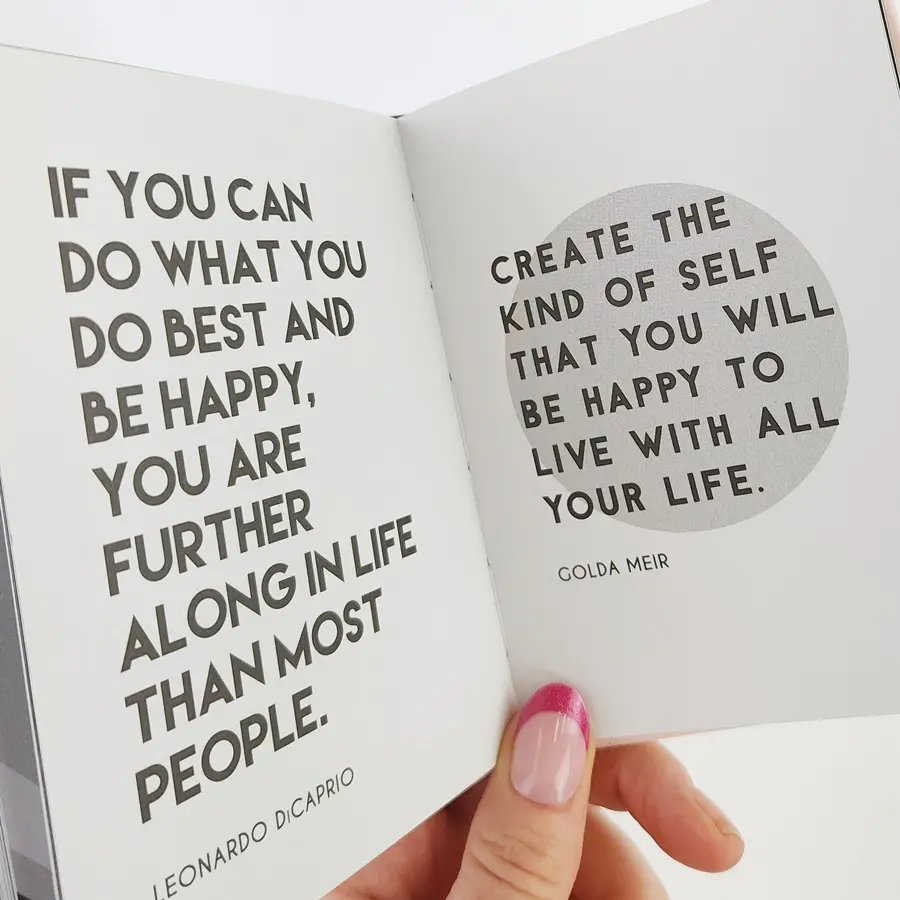 IF YOU CAN
DO WHAT YOU
DO BEST AND
BE HAPPY,
YOU ARE
FURTHER
ALONG IN LIFE
THAN MOST
PEOPLE.
LEONARDO DiCAPRIO
CREATE THE
KIND OF SELF
THAT YOU WILL
BE HAPPY TO
LIVE WITH ALL
YOUR LIFE.
GOLDA MEIR